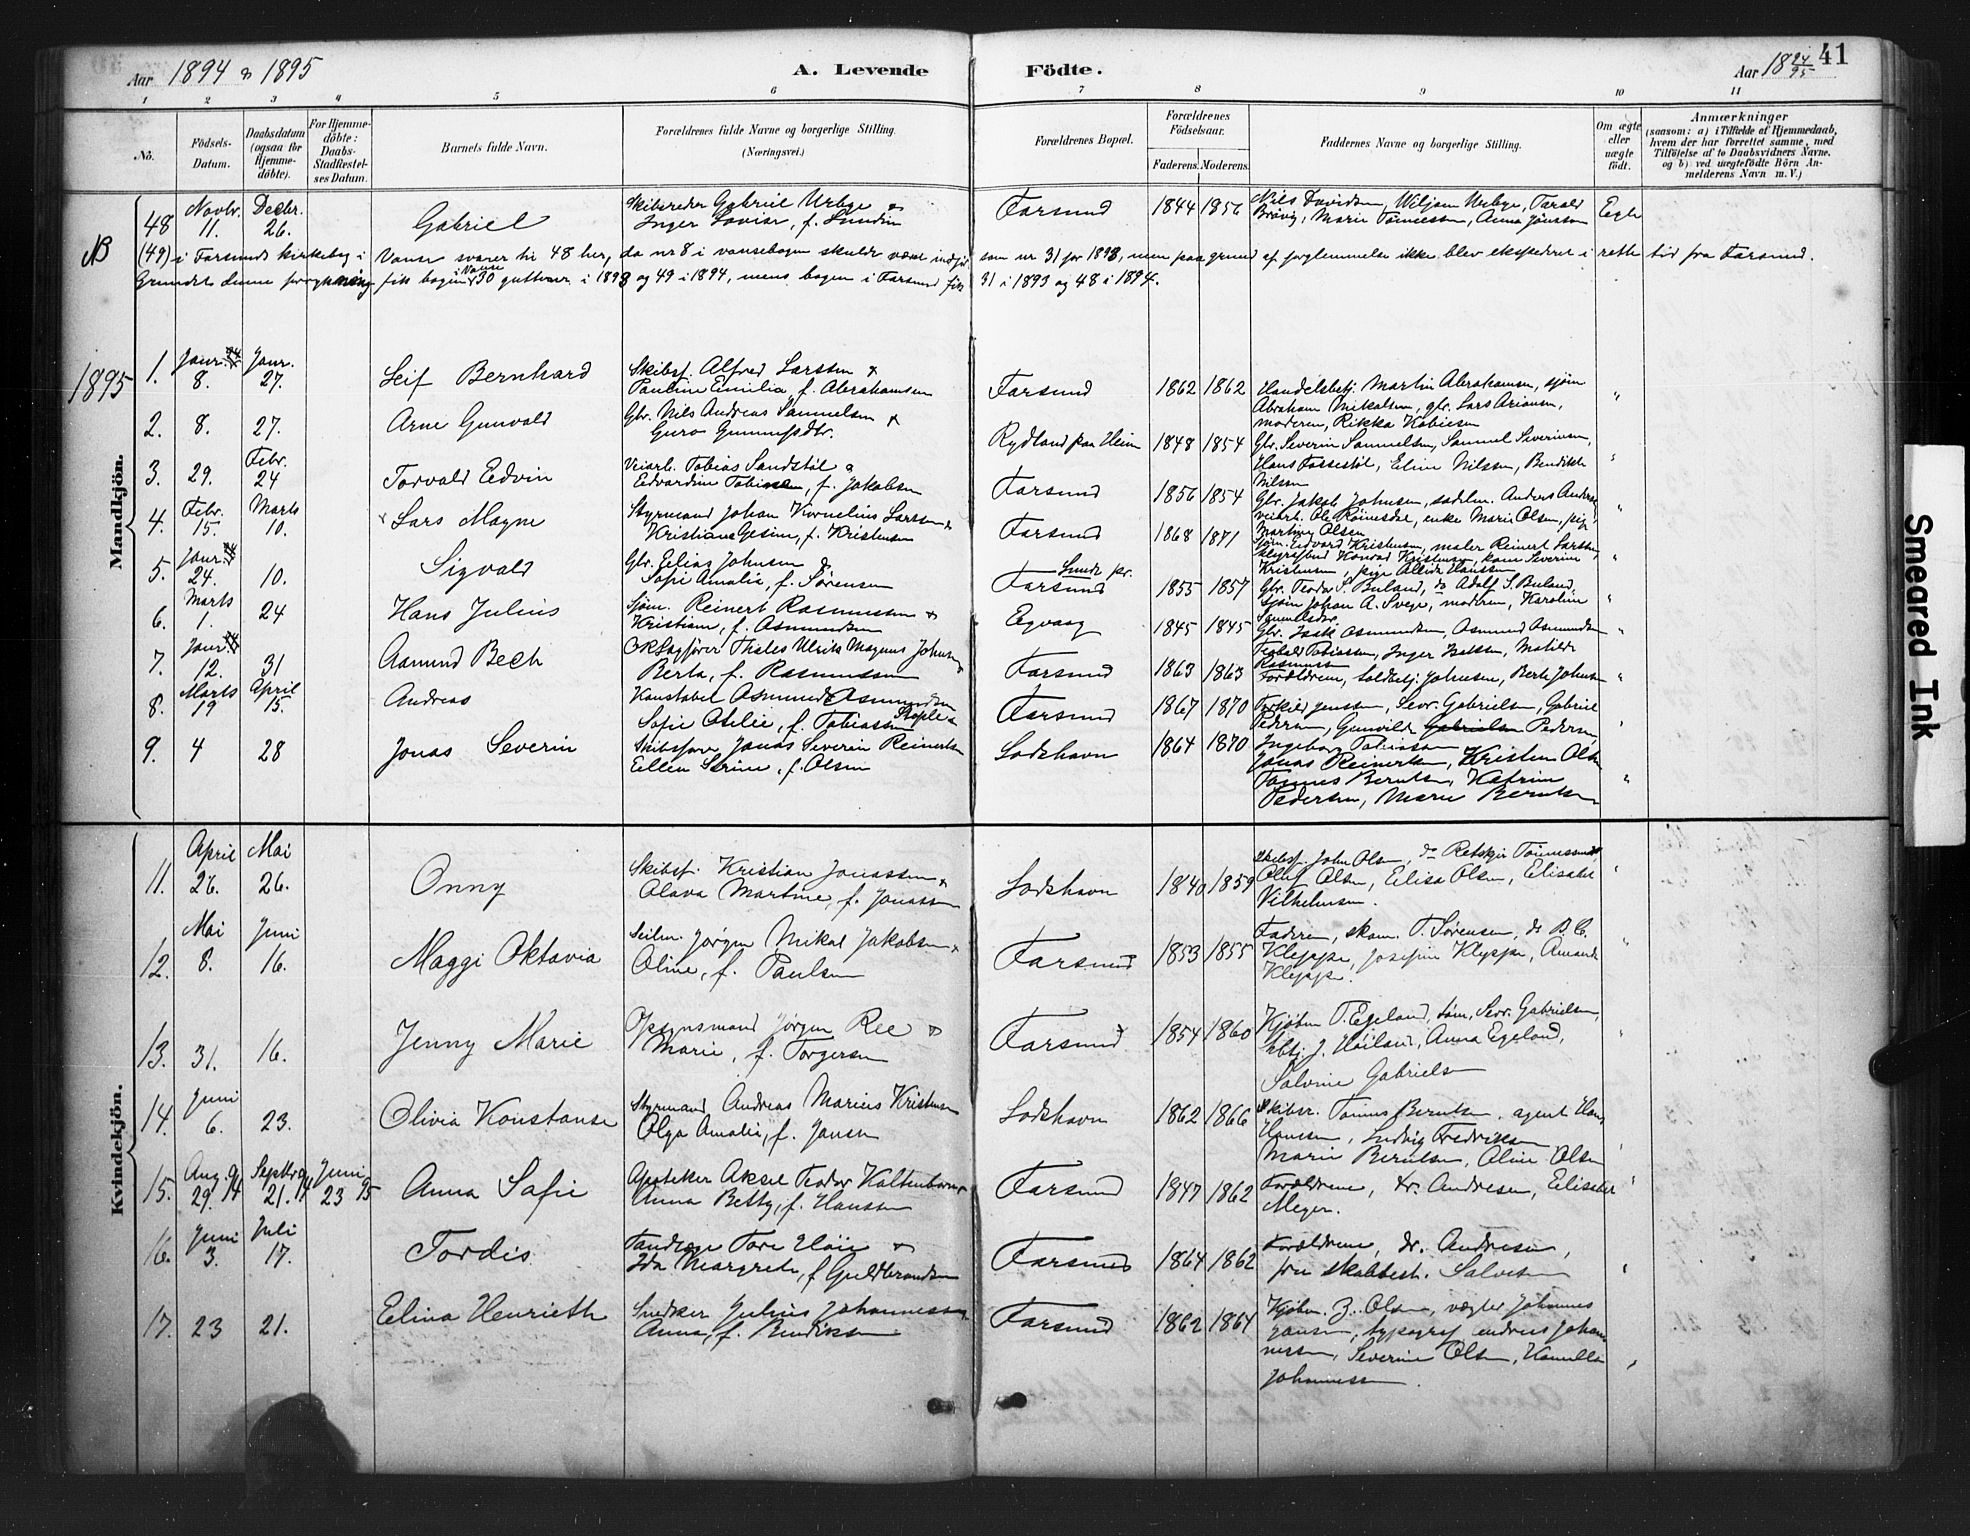 Aar 1894 & 1895
A. Levende
Födte.
Aar 18 94/95
41
1 2 3 4 5 6 7 8 9 10 11
No.
Födsels-Datum.
Daabsdatum (ogsaa for Hjemme-döbte).
For Hjemme-döbte: Daabs-Stadfæstel-ses Datum.
Barnets fulde Navn.
Forældrenes fulde Navne og borgerlige Stilling. (Næringsvei.)
Forældrenes Bopæl.
Forældrenes Födselsaar.
Faderens. Moderens.
Faddernes Navne og borgerlige Stilling.
Om ægte eller uægte födt.
Anmærkninger
(saasom: a) i Tilfælde af Hjemmedaab, hvem der har forrettet samme, med Tilföielse af to Daabsvidners Navne, og b) ved uægtefödte Börn An-melderens Navn m. V.)
48 Novbr. 11. Decbr. 26. Gabriel Skibsreder Gabriel Urbye & Farsund 1844 1856 Nils Davidsen, Wiljam Urbye, Tarald Egte
Inger Lovise, f. Lundin Brövig, Marie Tönnessen, Anna Jönsson
NB (49) i Farsunds kirkebog i Vanse svarer til 48 her, da nr 8 i vansebogen skulde være indført som nr 31 for 1893, men paa grund af forglemmelse ikke blev ekspederet i rette tid fra Farsund.
Grundet denne forglemmelse fik bogen i Vanse 30 guttener i 1893 og 49 i 1894, mens bogen i Farsund fik 31 i 1893 og 48 i 1894.
Mandkjön.
1895 1. Janr. 8. Janr. 27. Leif Bernhard Skibsf. Alfred Larssen & Farsund 1862 1862 Handelsbetj. Martin Abrahamsen, sjöm
Pauline Emilia, f. Abrahamsen Abraham Mikalsen, gbr. Lars Ariansen,
moderen, Rikka Kabiesen
2. 8. 27. Arne Gunvald Gbr. Nils Andreas Samuelsen & Rydland paa Heim 1848 1854 Gbr. Severin Samuelsen, Samuel Severinsen,
Guro Gunnufsdtr. Hans Fossestöl, Eline Nilssen, Bendikte
Nilssen
3. 29. Febr. 24 Torvald Edvin Veiarb. Tobias Sandstöl & Farsund 1856 1854 Gbr. Jakob Johnsen, sadelm. Anders Anders
Edvardine Tobine, f. Jakobsen veiarb. Ole Röinesdal, enke Marie Olsen, pige
Martine Olsen
4. Febr. 15. Marts 10. Lars Magne Styrmand Johan Kornelius Larssen & Farsund 1868 1871 Sjöm. Edvard Kristensen, maler Reinert Larssen
Kristiane Gesine, f. Kristensen Konrad Kristensen, kone Severine
Kristensen, pige Hanssen
5. Janr. 24. 10. Sigvald Gbr. Elias Johnsen & Farsund Lunde pr. 1855 1857 Gbr. Teodor S. Buland, do Adolf S. Buland,
Sofi Amalie, f. Sørensen Sjöm Johan A. Svege, moderen, Karoline
Samuelsdtr.
6. Marts 1. 24 Hans Julius Sjöm. Reinert Rasmussen & Egvaag 1845 1845 Gbr. Isak Asmundsen, Asmund Asmundsen
Kristiane, f. Asmundsen Teobald Tobiassen, Inger Isaksen, Matilde
Rasmussen
7. Janr. 12. 31 Aamund Bech ORSagfører Thales Ulrik Magnus Johnsen & Farsund 1863 1863 Forældrene, toldbetj. Johnsen, Berte Johnsen
Berta, f. Rasmussen
8. Marts 19 April 15. Andreas Konstabel Asmund Asmundsen Farsund 1867 1870 Torkild Jenssen, Sevr. Gabrielsen, Gabriel
Sofie Otilie, f. Tobiassen Pedersen, Gunvild Gabrielsen Pedersen
Ingeborg Tobiassen
9. 4 28 Jonas Severin Skibsförer Jonas Severin Reinertsen Lodshavn 1864 1870 Jonas Reinertsen, Kristen Olsen
Ellen Serine, f. Olsen Tönnes Berntsen, Katrine
Pedersen, Marie Berntsen
Kvindekjön.
11. April 26. Mai 26. Onny Skibsf. Kristian Jonassen & Lodshavn 1840 1859 Skibsf. John Olsen, do Retskjr Tönnessen
Olava Martine, f. Jonassen Oluf Olsen, Elisa Olsen, Elisabet
Vilhelmsen.
12. Mai 8. Juni 16. Maggi Oktavia Seilm. Jörgen Mikal Jakobsen & Farsund 1853 1855 Faderen, skom. T. Sørensen, do B.C.
Oline, f. Paulsen Kleppe, Josefine Kleppe, Amanda
Kleppe.
13. 31. 16. Jenny Marie Opsynsmand Jörgen Ree & Farsund 1854 1860 Kjöbm T. Egeland, Sevr. Gabrielsen,
Marie, f. Torgersen J. Höiland, Anna Egeland,
Salvine Gabrielsen
14. Juni 6. 23. Olivia Konstanse Styrmand Andreas Marius Kristensen Lodshavn 1862 1866 Skibsr. Tönnes Berntsen, agent Hans
Olga Amalie, f. Jansen Hansen, Ludvig Fredriksen
Marie Berntsen, Aline Olsen
15. Aug. 94 29. Septbr 94 21. Juni 23 95 Anna Sofie Apoteker Aksel Teodor Kaltenborn & Farsund 1847 1862 Forældrene, dr. Andresen, Elisabet
Anna Betty, f. Hanssen Meyer.
16. Juni 3. Juli 17. Tordis Tandlæge Tore Höie & Farsund 1864 1862 Forældrene, dr. Andresen,
Ida Margrete, f. Guldbrandsen fru skolebest. Salvesen
17. 23 21. Elina Henriette Snedker Julius Johannessen & Farsund 1862 1864 Kjöbm. Z. Olsen, vægter Johannes
Anna, f. Bendiksen Jansen, typograf Andreas Johan-
nessen, Severine Olsen, Kamilla
Johannessen
Smeared Ink